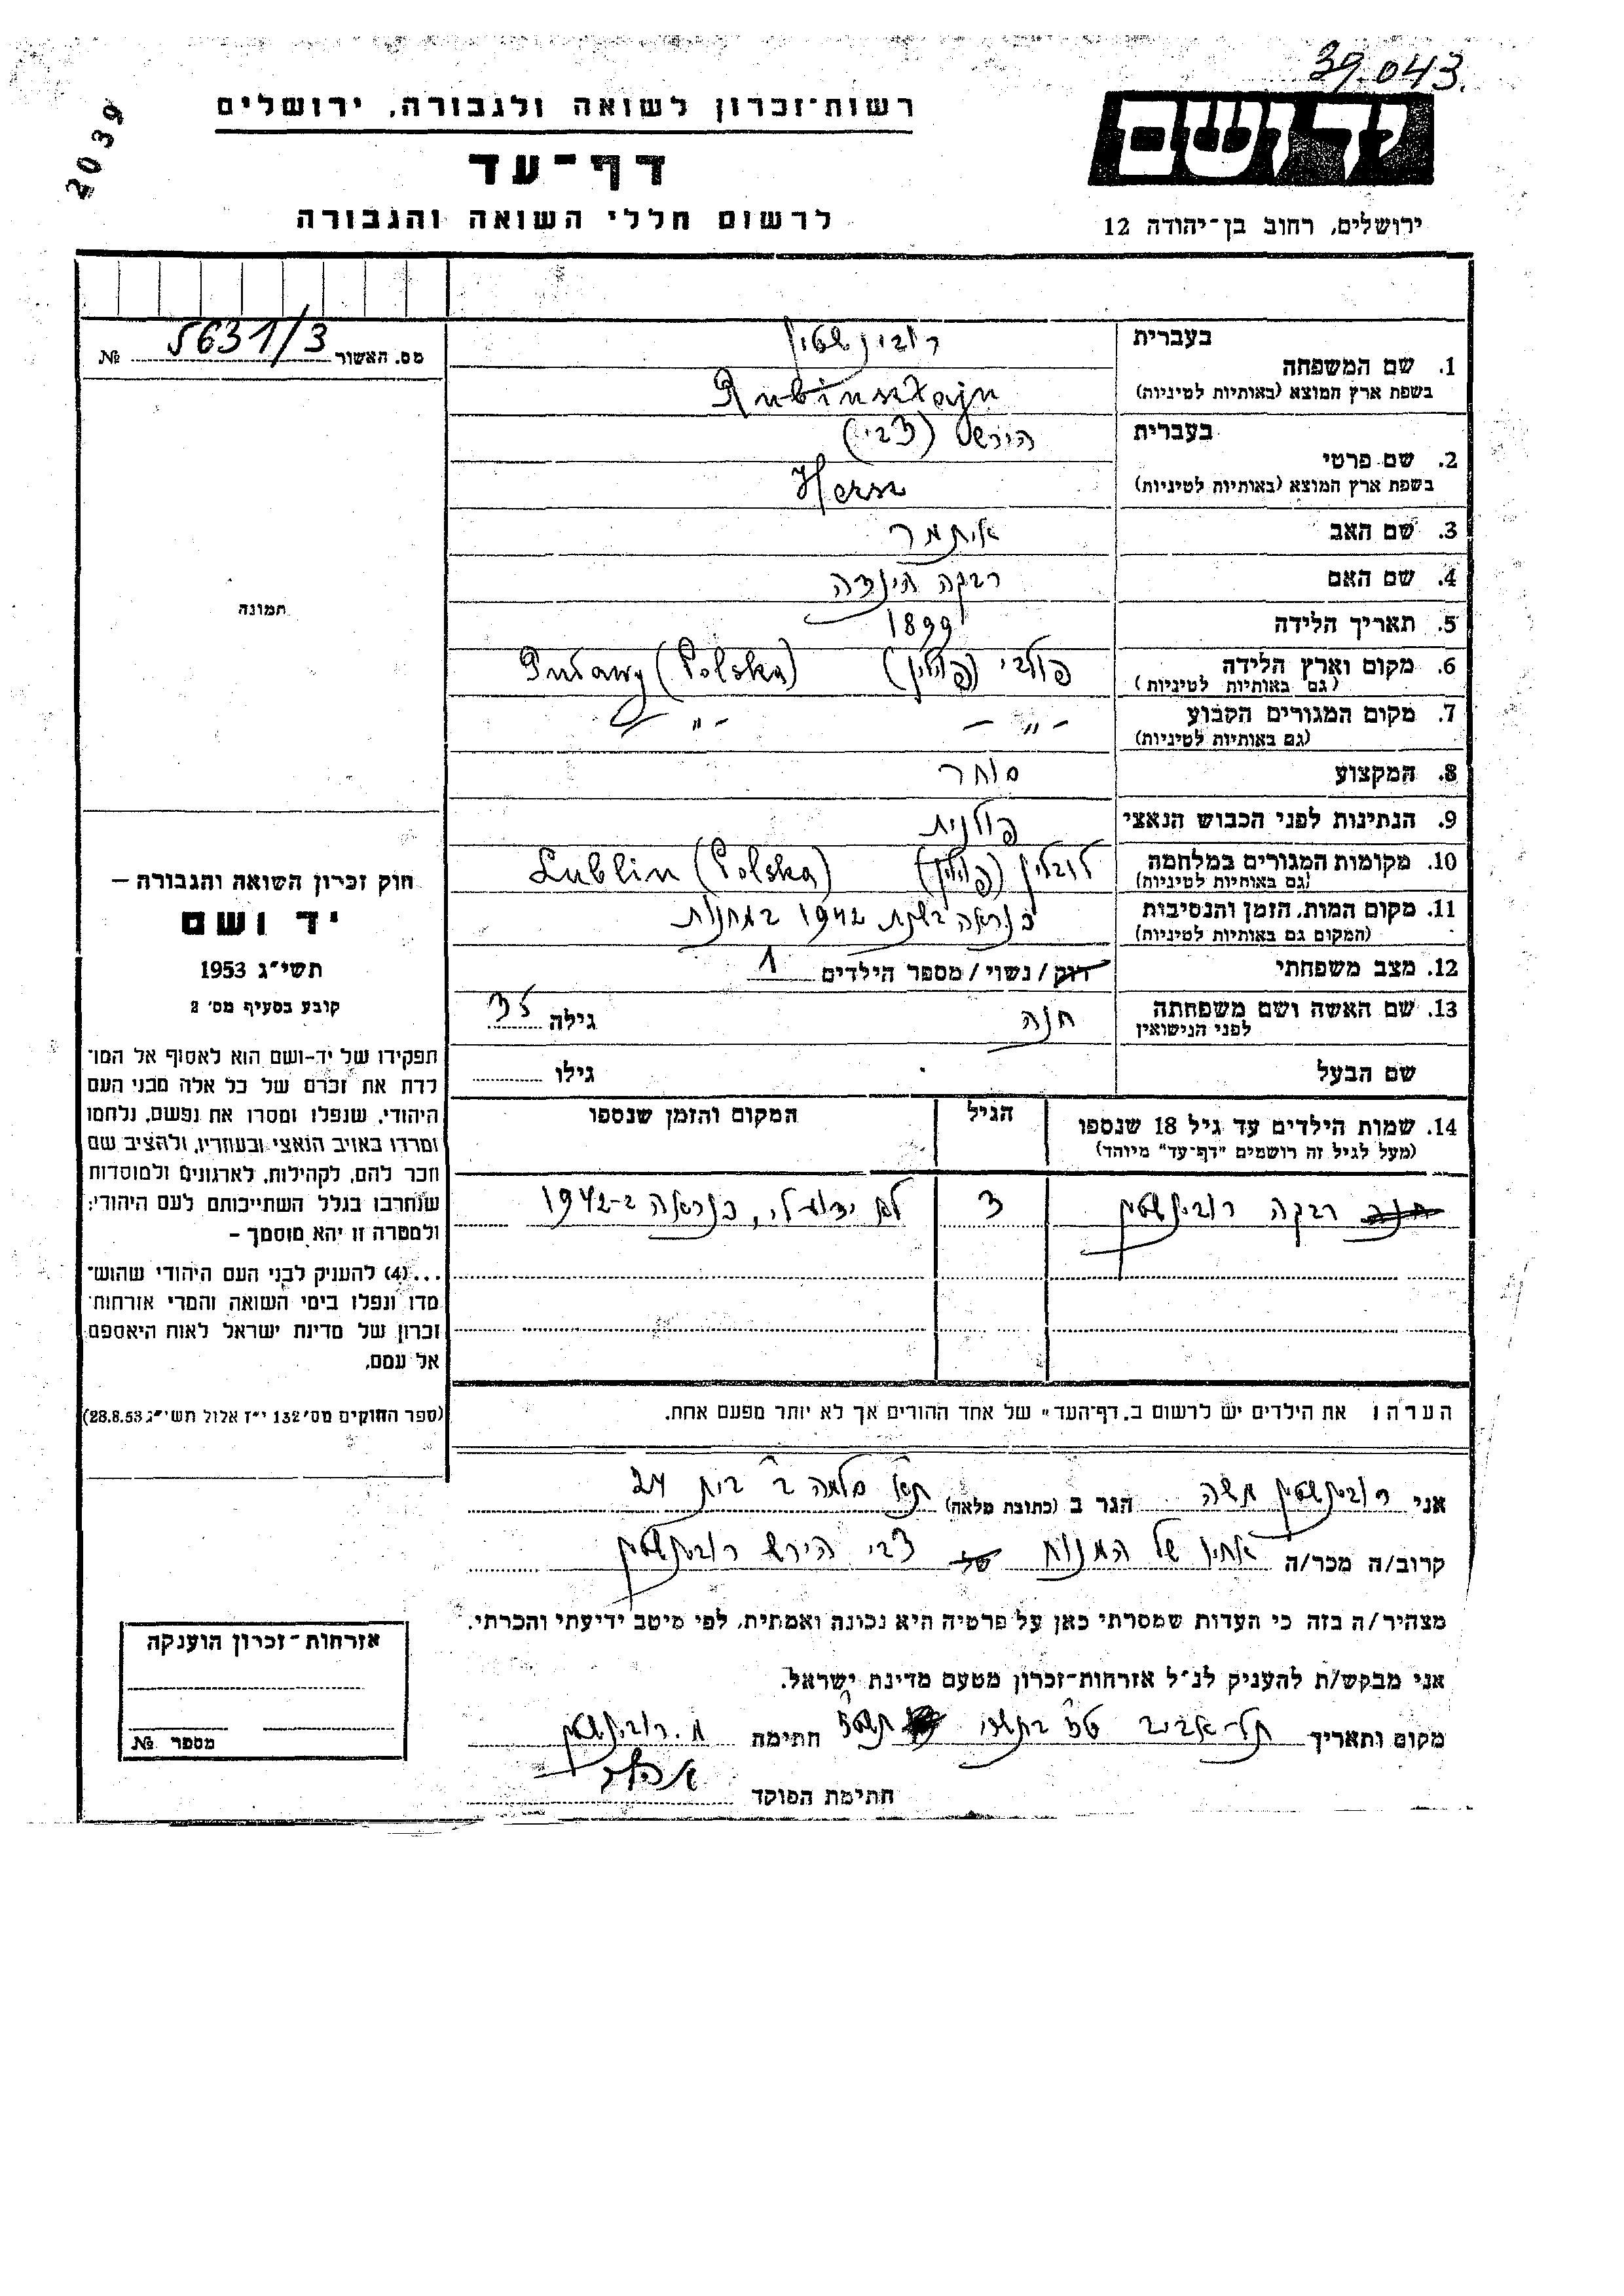 39.043.
2039
רשות־זכרון לשואה ולגבורה, ירושלים
יד ושם
דף־עד
לרשום חללי השואה והגבורה
ירושלים, רחוב בן־יהודה 12
מס. האשור 5631/3 №
תמונה
חוק זכרון השואה והגבורה —
יד ושם
תשי״ג 1953
קובע בסעיף מס׳ 2
תפקידו של יד-ושם הוא לאסוף אל המו־
לדת את זכרם של כל אלה מבני העם
היהודי, שנפלו ומסרו את נפשם, נלחמו
ומרדו באויב הנאצי ובעוזריו, ולהציב שם
וזכר להם, לקהילות, לארגונים ולמוסדות
שנחרבו בגלל השתייכותם לעם היהודי;
ולמטרה זו יהא מוסמך —
...(4) להעניק לבני העם היהודי שהוש־
מדו ונפלו בימי השואה והמרי אזרחות־
זכרון של מדינת ישראל לאות היאספם
אל עמם.
(ספר החוקים מס׳ 132 י״ז אלול תשי״ג 28.8.53)
בעברית רובינשטיין
1. שם המשפחה
בשפת ארץ המוצא (באותיות לטיניות) Rubinsztajn
בעברית הירש (צבי)
2. שם פרטי
בשפת ארץ המוצא (באותיות לטיניות) Hersz
3. שם האב איתמר
4. שם האם רבקה הינדה
5. תאריך הלידה 1899
6. מקום וארץ הלידה פולבי (פולין) Puławy (Polska)
(גם באותיות לטיניות)
7. מקום המגורים הקבוע — „ — — „ —
(גם באותיות לטיניות)
8. המקצוע סוחר
9. הנתינות לפני הכבוש הנאצי פולנית
10. מקומות המגורים במלחמה לובלין (פולין) Lublin (Polska)
(גם באותיות לטיניות)
11. מקום המות, הזמן והנסיבות כנראה בשנת 1942 במחנות
(המקום גם באותיות לטיניות)
12. מצב משפחתי רווק/נשוי/מספר הילדים 1
13. שם האשה ושם משפחתה חנה גילה 35
לפני הנישואין
שם הבעל גילו
14. שמות הילדים עד גיל 18 שנספו הגיל המקום והזמן שנספו
(מעל לגיל זה רושמים "דף־עד" מיוחד)
רבקה רובינשטיין 3 לא ידוע לי, כנראה ב-1942
הערה: את הילדים יש לרשום ב„דף־העד" של אחד ההורים אך לא יותר מפעם אחת.
אני רובינשטיין משה הגר ב (כתובת מלאה) ת״א שלמה ב׳ בית 24
קרוב/ה מכר/ה אחיו של המנוח צבי הירש רובינשטיין
מצהיר/ה בזה כי העדות שמסרתי כאן על פרטיה היא נכונה ואמתית, לפי מיטב ידיעתי והכרתי.
אני מבקש/ת להעניק לנ״ל אזרחות־זכרון מטעם מדינת ישראל.
מקום ותאריך תל-אביב בתשרי חתימה מ. רובינשטיין
חתימת הפוקד
אזרחות־זכרון הוענקה
מספר №